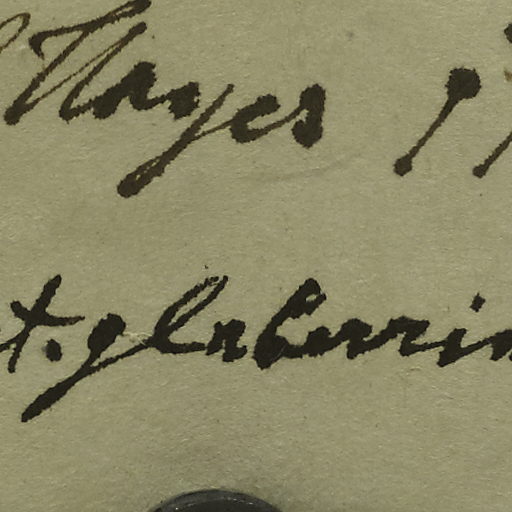 Hayes
t. glaberrim